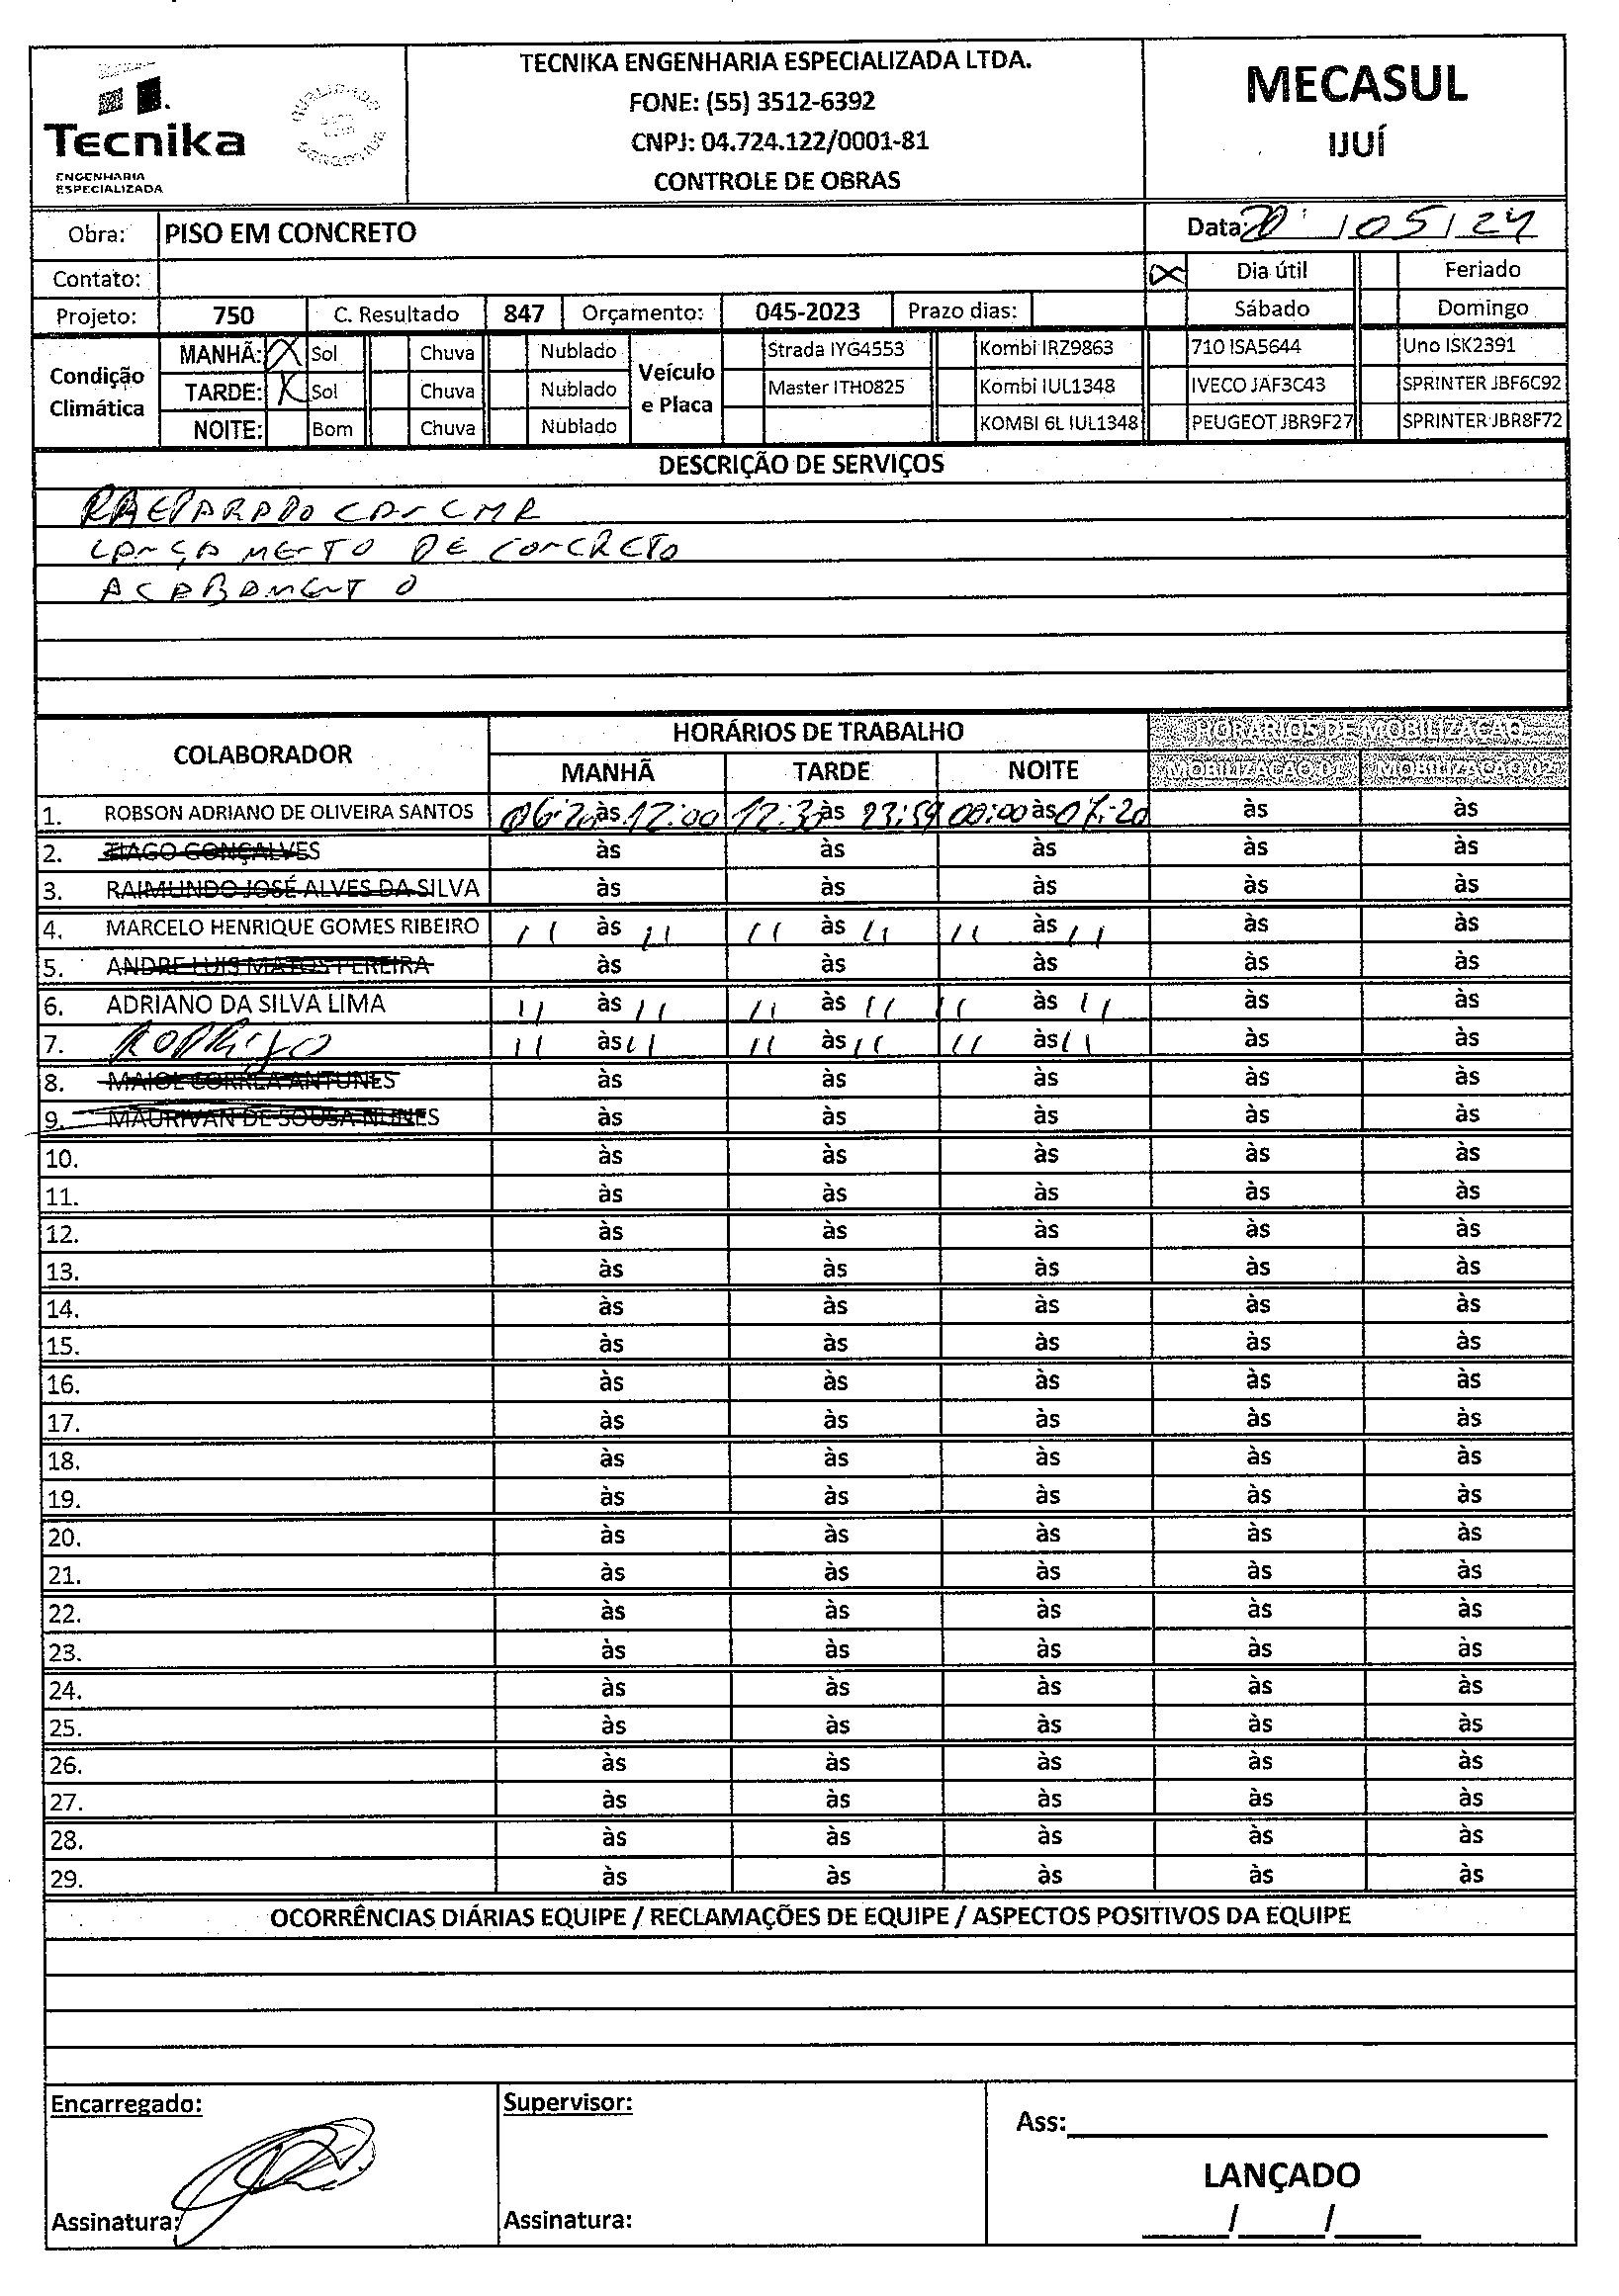 Tecnika
ENGENHARIA
ESPECIALIZADA
TECNIKA ENGENHARIA ESPECIALIZADA LTDA.
FONE: (55) 3512-6392
CNPJ: 04.724.122/0001-81
CONTROLE DE OBRAS
MECASUL
IJUÍ
Obra: PISO EM CONCRETO Data: 20 / 05 / 24
Contato: X Dia útil Feriado
Projeto: 750 C. Resultado 847 Orçamento: 045-2023 Prazo dias: Sábado Domingo
Condição Climática
MANHÃ: X Sol Chuva Nublado
TARDE: X Sol Chuva Nublado
NOITE: Bom Chuva Nublado
Veículo e Placa
Strada IYG4553 Kombi IRZ9863 710 ISA5644 Uno ISK2391
Master ITH0825 Kombi IUL1348 IVECO JAF3C43 SPRINTER JBF6C92
KOMBI 6L IUL1348 PEUGEOT JBR9F27 SPRINTER JBR8F72
DESCRIÇÃO DE SERVIÇOS
LANÇAMENTO DE CONCRETO
ACABAMENTO
COLABORADOR HORÁRIOS DE TRABALHO HORÁRIOS DE MOBILIZAÇÃO
MANHÃ TARDE NOITE MOBILIZAÇÃO 01 MOBILIZAÇÃO 02
1. ROBSON ADRIANO DE OLIVEIRA SANTOS 06:20 às 12:00 12:30 às 23:59 00:00 às 07:20 às às
2. TIAGO GONÇALVES às às às às às
3. RAIMUNDO JOSÉ ALVES DA SILVA às às às às às
4. MARCELO HENRIQUE GOMES RIBEIRO 11 às 11 11 às 11 11 às 11 às às
5. ANDRE LUIS MATOS PEREIRA às às às às às
6. ADRIANO DA SILVA LIMA 11 às 11 11 às 11 11 às 11 às às
7. RODRIGO 11 às 11 11 às 11 11 às 11 às às
8. MAICL CORREA ANTUNES às às às às às
9. MAURIVAN DE SOUSA NUNES às às às às às
10. às às às às às
11. às às às às às
12. às às às às às
13. às às às às às
14. às às às às às
15. às às às às às
16. às às às às às
17. às às às às às
18. às às às às às
19. às às às às às
20. às às às às às
21. às às às às às
22. às às às às às
23. às às às às às
24. às às às às às
25. às às às às às
26. às às às às às
27. às às às às às
28. às às às às às
29. às às às às às
OCORRÊNCIAS DIÁRIAS EQUIPE / RECLAMAÇÕES DE EQUIPE / ASPECTOS POSITIVOS DA EQUIPE
Encarregado: Supervisor:
Ass:
LANÇADO
Assinatura: Assinatura:
__/__/__